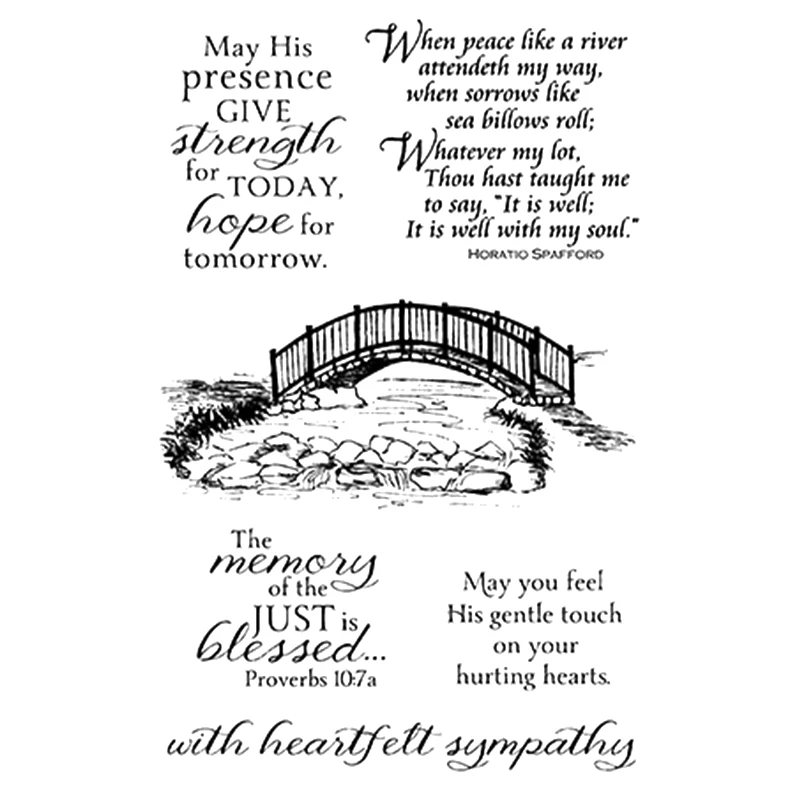 May His
presence
GIVE
strength
for TODAY,
hope for
tomorrow.
When peace like a river
attendeth my way,
when sorrows like
sea billows roll;
Whatever my lot,
Thou hast taught me
to say, "It is well;
It is well with my soul."
HORATIO SPAFFORD
The
memory
of the
JUST is
blessed...
Proverbs 10:7a
May you feel
His gentle touch
on your
hurting hearts.
with heartfelt sympathy